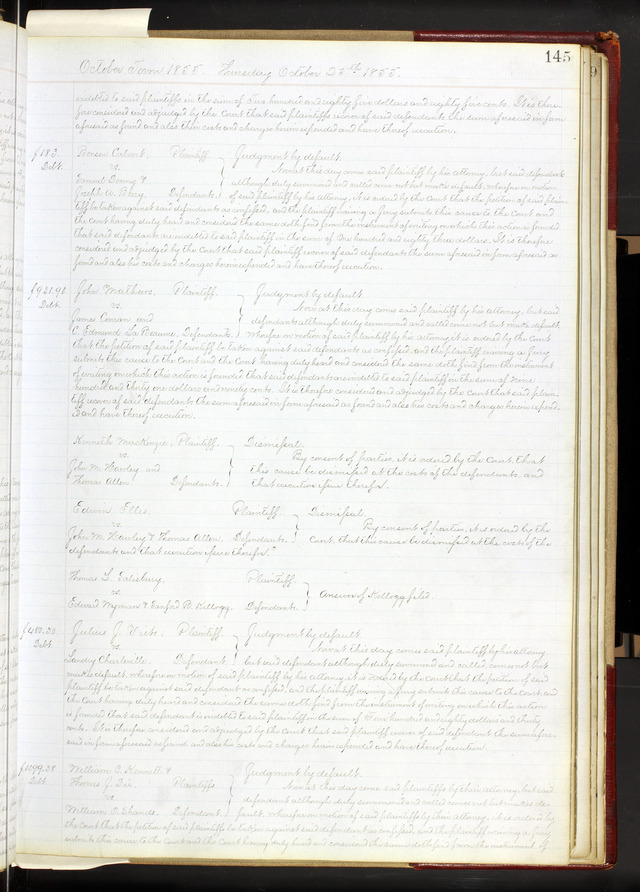 145
October Term 1855. Thursday October 25th 1855.
indebted to said plaintiffs in the sum of Two hundred and eighty five dollars and eighty five cents. It is there
fore considered and adjudged by the Court that said plaintiffs recover of said defendants the sum aforesaid in form
aforesaid as found and also their costs and charges herein expended and have thereof execution.
$183. Plaintiff Judgment by default.
Debt. vs. Now at this day comes said plaintiff by his attorney, but said defendants
Samuel & although duly summoned and called come not but make default, wherefore on motion
Joseph A. Defendants. of said plaintiff by his attorney, it is ordered by the Court that the petition of said plain
tiff be taken against said defendants as confessed, and the plaintiff waiving a jury submits this cause to the Court and
the Court having duly heard and considered the same doth find from the instrument of writing on which this action is founded
that said defendants are indebted to said plaintiff in the sum of One hundred and eighty three dollars. It is therefore
considered and adjudged by the Court that said plaintiff recover of said defendants the sum aforesaid in form aforesaid as
found and also his costs and charges herein expended and have thereof execution.
$931.90 John Mathews, Plaintiff. Judgment by default.
Debt. vs. Now at this day comes said plaintiff by his attorney, but said
James and defendants although duly summoned and called come not but make default
C. Edmund La Beaume, Defendants. wherefore on motion of said plaintiff by his attorney it is ordered by the Court
that the petition of said plaintiff be taken against said defendants as confessed, and the plaintiff waiving a jury
submits this cause to the Court and the Court having duly heard and considered the same doth find from the instrument
of writing on which this action is founded that said defendants are indebted to said plaintiff in the sum of Nine
hundred and thirty one dollars and ninety cents. It is therefore considered and adjudged by the Court that said plain
tiff recover of said defendants the sum aforesaid in form aforesaid as found and also his costs and charges herein expend
ed and have thereof execution.
Kenneth MacKenzie, Plaintiff. Dismissal.
vs. By consent of parties, it is ordered by the Court, that
John M. Hawley and this cause be dismissed at the costs of the defendants, and
Thomas Allen Defendants. that execution issue therefor.
Edwin Ellis. Plaintiff. Dismissal.
vs. By consent of parties, it is ordered by the
John M. Hawley & Thomas Allen, Defendants. Court, that this cause be dismissed at the costs of the
defendants and that execution issue therefor.
Thomas L. Salisbury. Plaintiff.
vs. Answer of Kellogg filed.
Edward Wyman & Sanford B. Kellogg. Defendants.
$480.30 Julius J. Plaintiff. Judgment by default.
Debt. vs. Now at this day comes said plaintiff by his attorney
Landy Charleville. Defendant. but said defendant although duly summoned and called comes not but
makes default, wherefore on motion of said plaintiff by his attorney, it is ordered by the Court that the petition of said
plaintiff be taken against said defendant as confessed, and the plaintiff waiving a jury submits the cause to the Court and
the Court having duly heard and considered the same doth find from the instrument of writing on which this action
is founded that said defendant is indebted to said plaintiff in the sum of Four hundred and eighty dollars and thirty
cents. It is therefore considered and adjudged by the Court that said plaintiff recover of said defendant the sum afore
said in form aforesaid as found and also his costs and charges herein expended and have thereof execution.
William C. Kennett & Judgment by default.
Debt. Thomas J. Plaintiffs Now at this day come said plaintiffs by their attorney, but said
vs. defendant although duly summoned and called comes not but makes de
William B. Shands. Defendant. fault, wherefore on motion of said plaintiffs by their attorney, it is ordered by
the Court that the petition of said plaintiffs be taken against said defendant as confessed, and the plaintiffs waiving a jury
submits this cause to the Court and the Court having duly heard and considered the same doth find from the instrument of